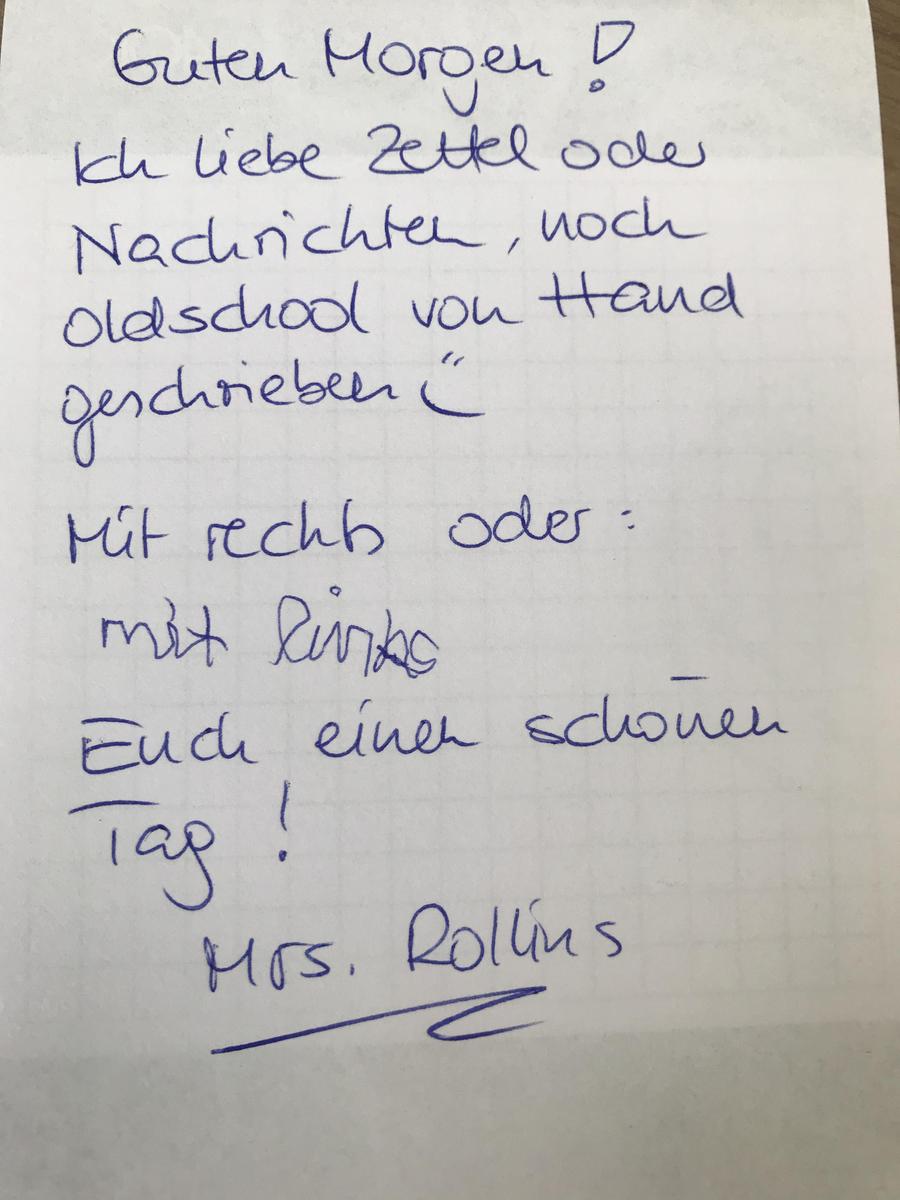 Guten Morgen!
Ich liebe Zettel oder
Nachrichten, noch
oldschool von Hand
geschrieben ü
Mit rechts oder:
mit links
Euch einen schönen
Tag!
Mrs. Rollins